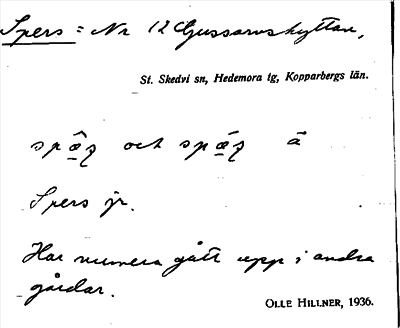 Spers = Nr 12 Gussarvshyttan,
St. Skedvi sn, Hedemora tg, Kopparbergs län.
och
Spers jr.
Har numera gått upp i andra
gårdar.
OLLE HILLNER, 1936.